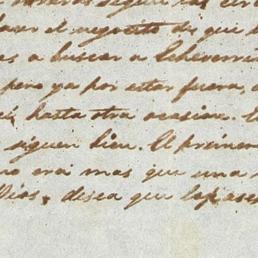 segun las cir
hacer el negocito de que h
es a buscar a Echeverria
pero ya por estar fuera, o
cí, hasta otra ocasion. E
siguen bien. El primero
no era mas que una
Dios, desea que le pase